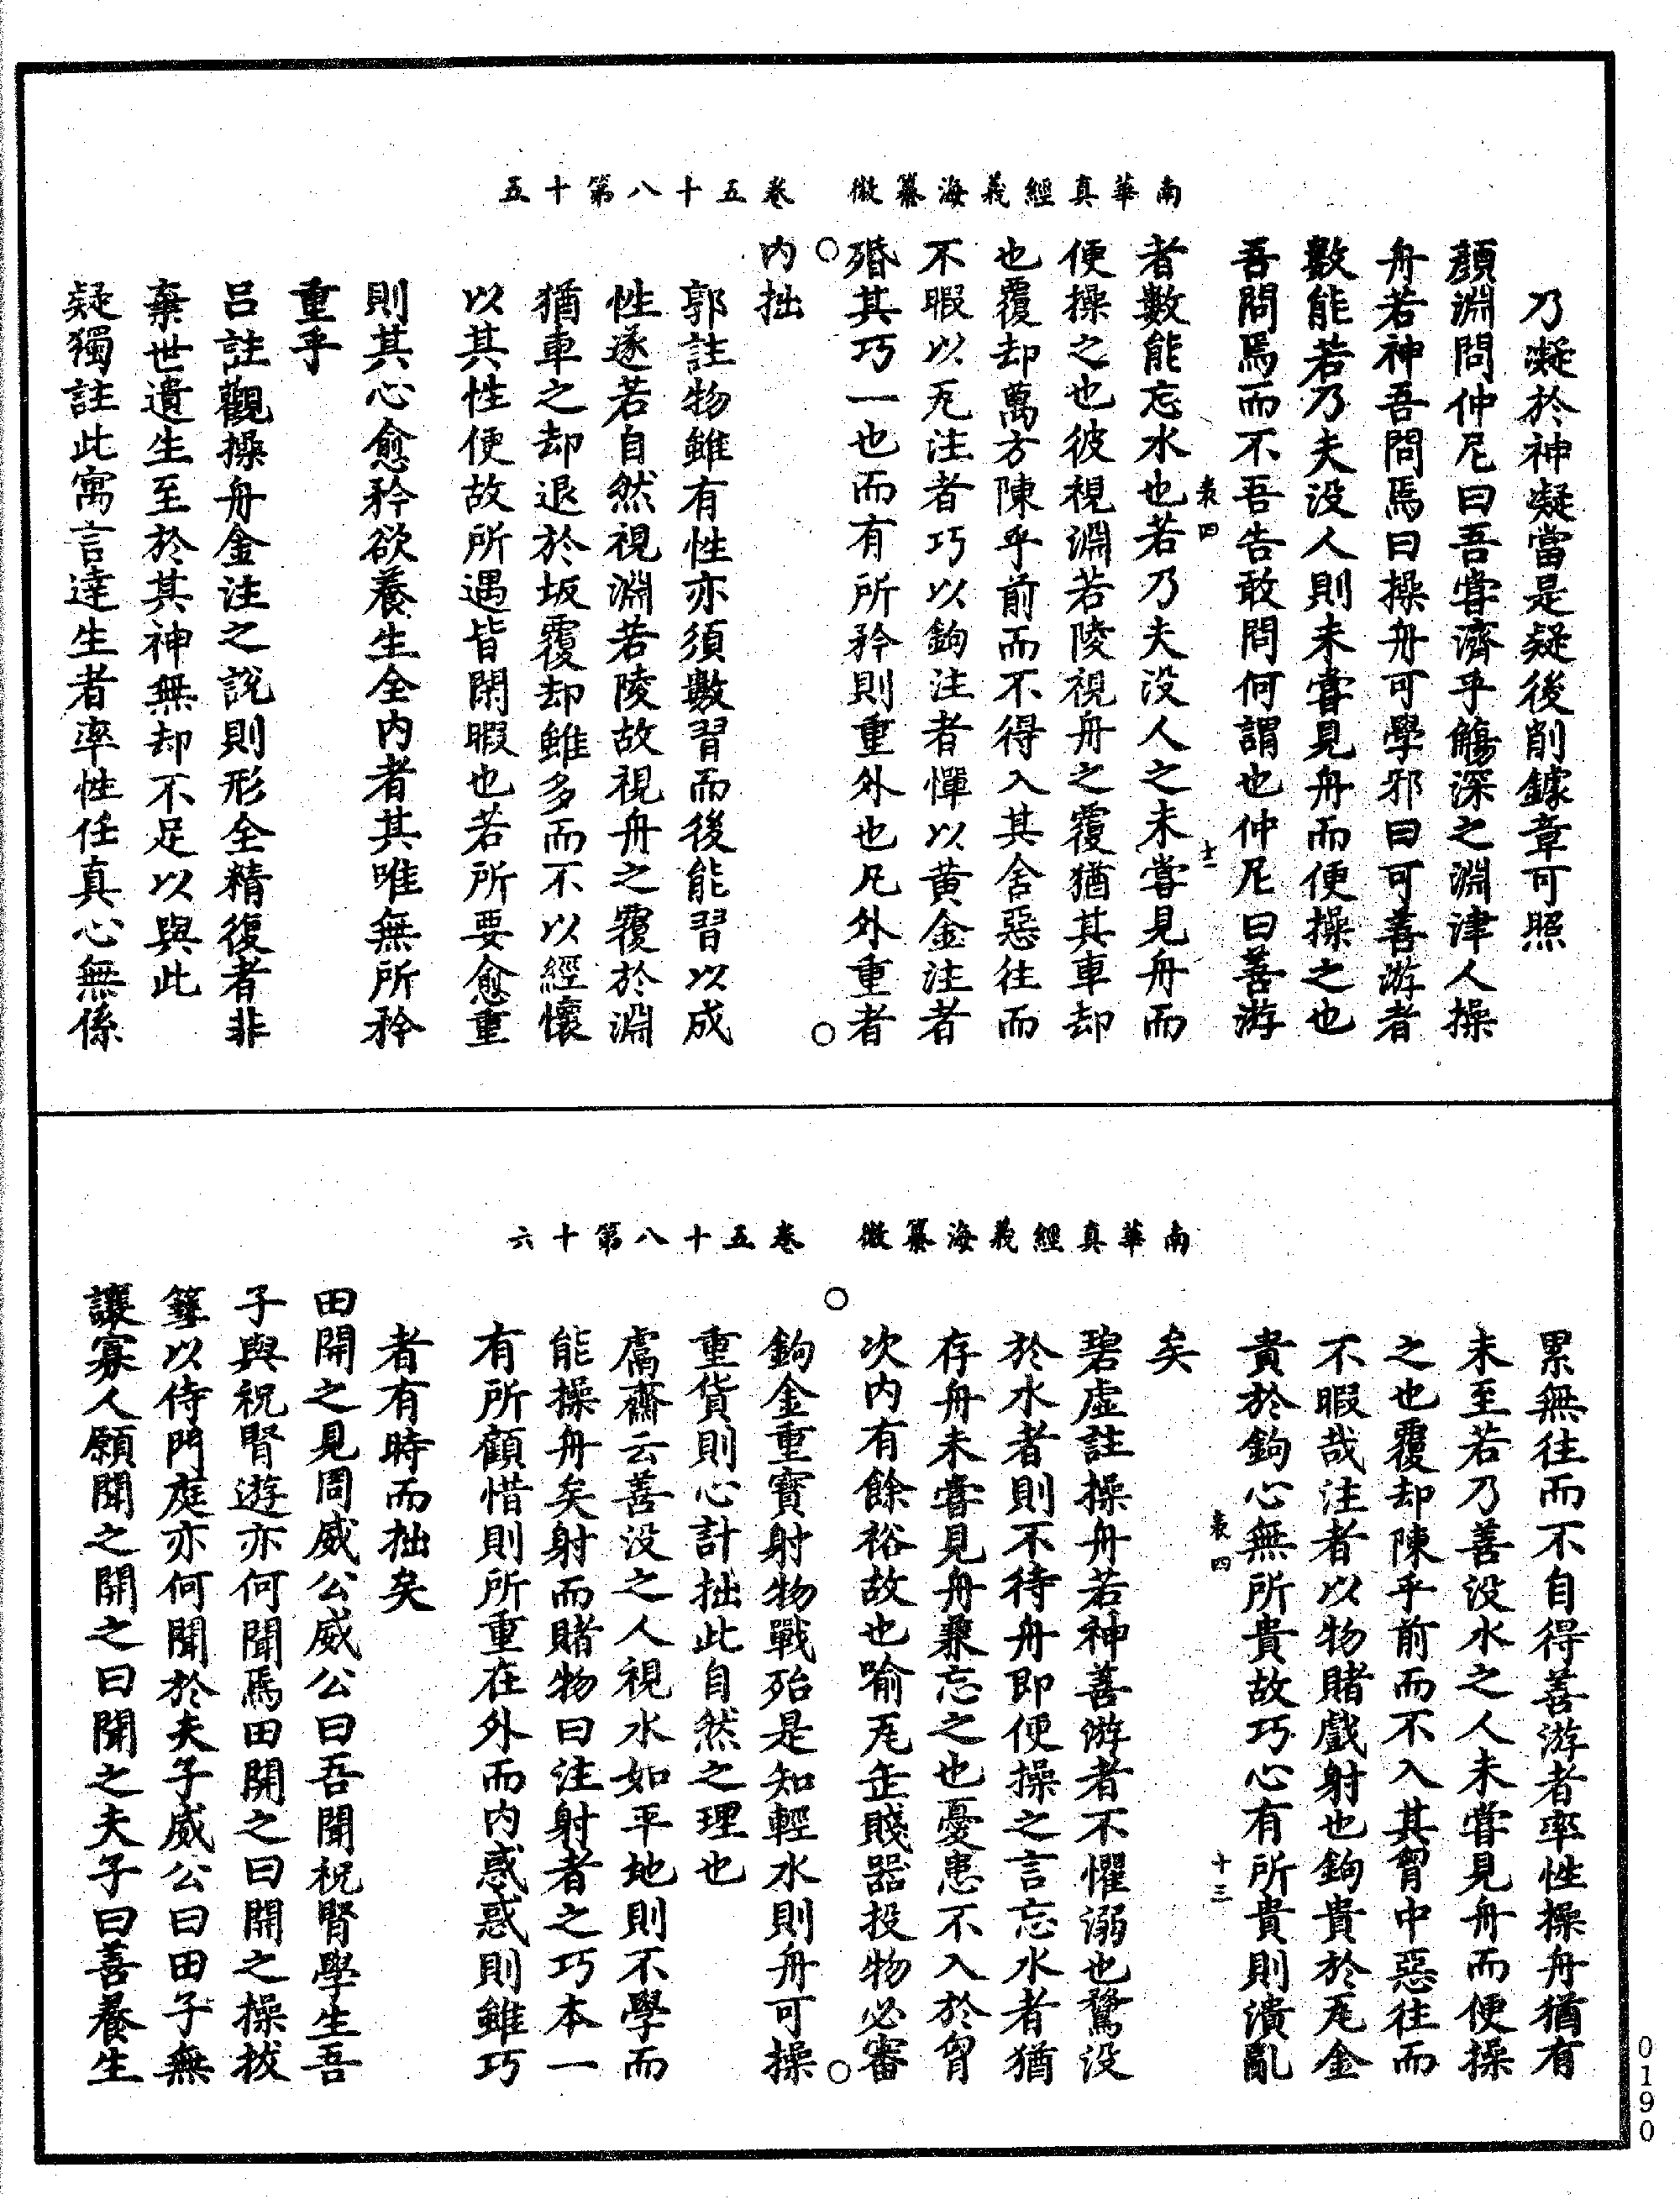 南華真經義海纂微　卷五十八第十五
乃凝於神凝當是疑後削鐻章可照
顏淵問仲尼曰吾甞濟乎觴深之淵津人操
舟若神吾問焉曰操舟可學邪曰可善游者
數能若乃夫没人則未甞見舟而便操之也
吾問焉而不吾告敢問何謂也仲尼曰善游
袁四　十二
者數能忘水也若乃夫没人之未甞見舟而
便操之也彼視淵若陵視舟之覆猶其車却
也覆却萬方陳乎前而不得入其舍惡往而
不暇以瓦注者巧以鉤注者憚以黄金注者
殙其巧一也而有所矜則重外也凡外重者
内拙
郭註物雖有性亦須數習而後能習以成
性遂若自然視淵若陵故視舟之覆於淵
猶車之却退於坂覆却雖多而不以經懷
以其性便故所遇皆閑暇也若所要愈重
則其心愈矜欲養生全内者其唯無所矜
重乎
吕註觀操舟金注之説則形全精復者非
棄世遺生至於其神無却不足以與此
疑獨註此寓言達生者率性任真心無係
南華真經義海纂微　卷五十八第十六
累無往而不自得善游者率性操舟猶有
未至若乃善没水之人未甞見舟而便操
之也覆却陳乎前而不入其胷中惡往而
不暇哉注者以物賭戲射也鉤貴於瓦金
貴於鉤心無所貴故巧心有所貴則潰亂
袁四　十三
矣
碧虚註操舟若神善游者不懼溺也鶩没
於水者則不待舟即便操之言忘水者猶
存舟未甞見舟兼忘之也憂患不入於胷
次内有餘裕故也喻瓦缶賤器投物必審
鉤金重寳射物戰殆是知輕水則舟可操
重貨則心計拙此自然之理也
鬳齋云善没之人視水如平地則不學而
能操舟矣射而賭物曰注射者之巧本一
有所顧惜則所重在外而内惑惑則雖巧
者有時而拙矣
田開之見周威公威公曰吾聞祝腎學生吾
子與祝腎遊亦何聞焉田開之曰開之操拔
篲以侍門庭亦何聞於夫子威公曰田子無
讓寡人願聞之開之曰聞之夫子曰善養生
0190